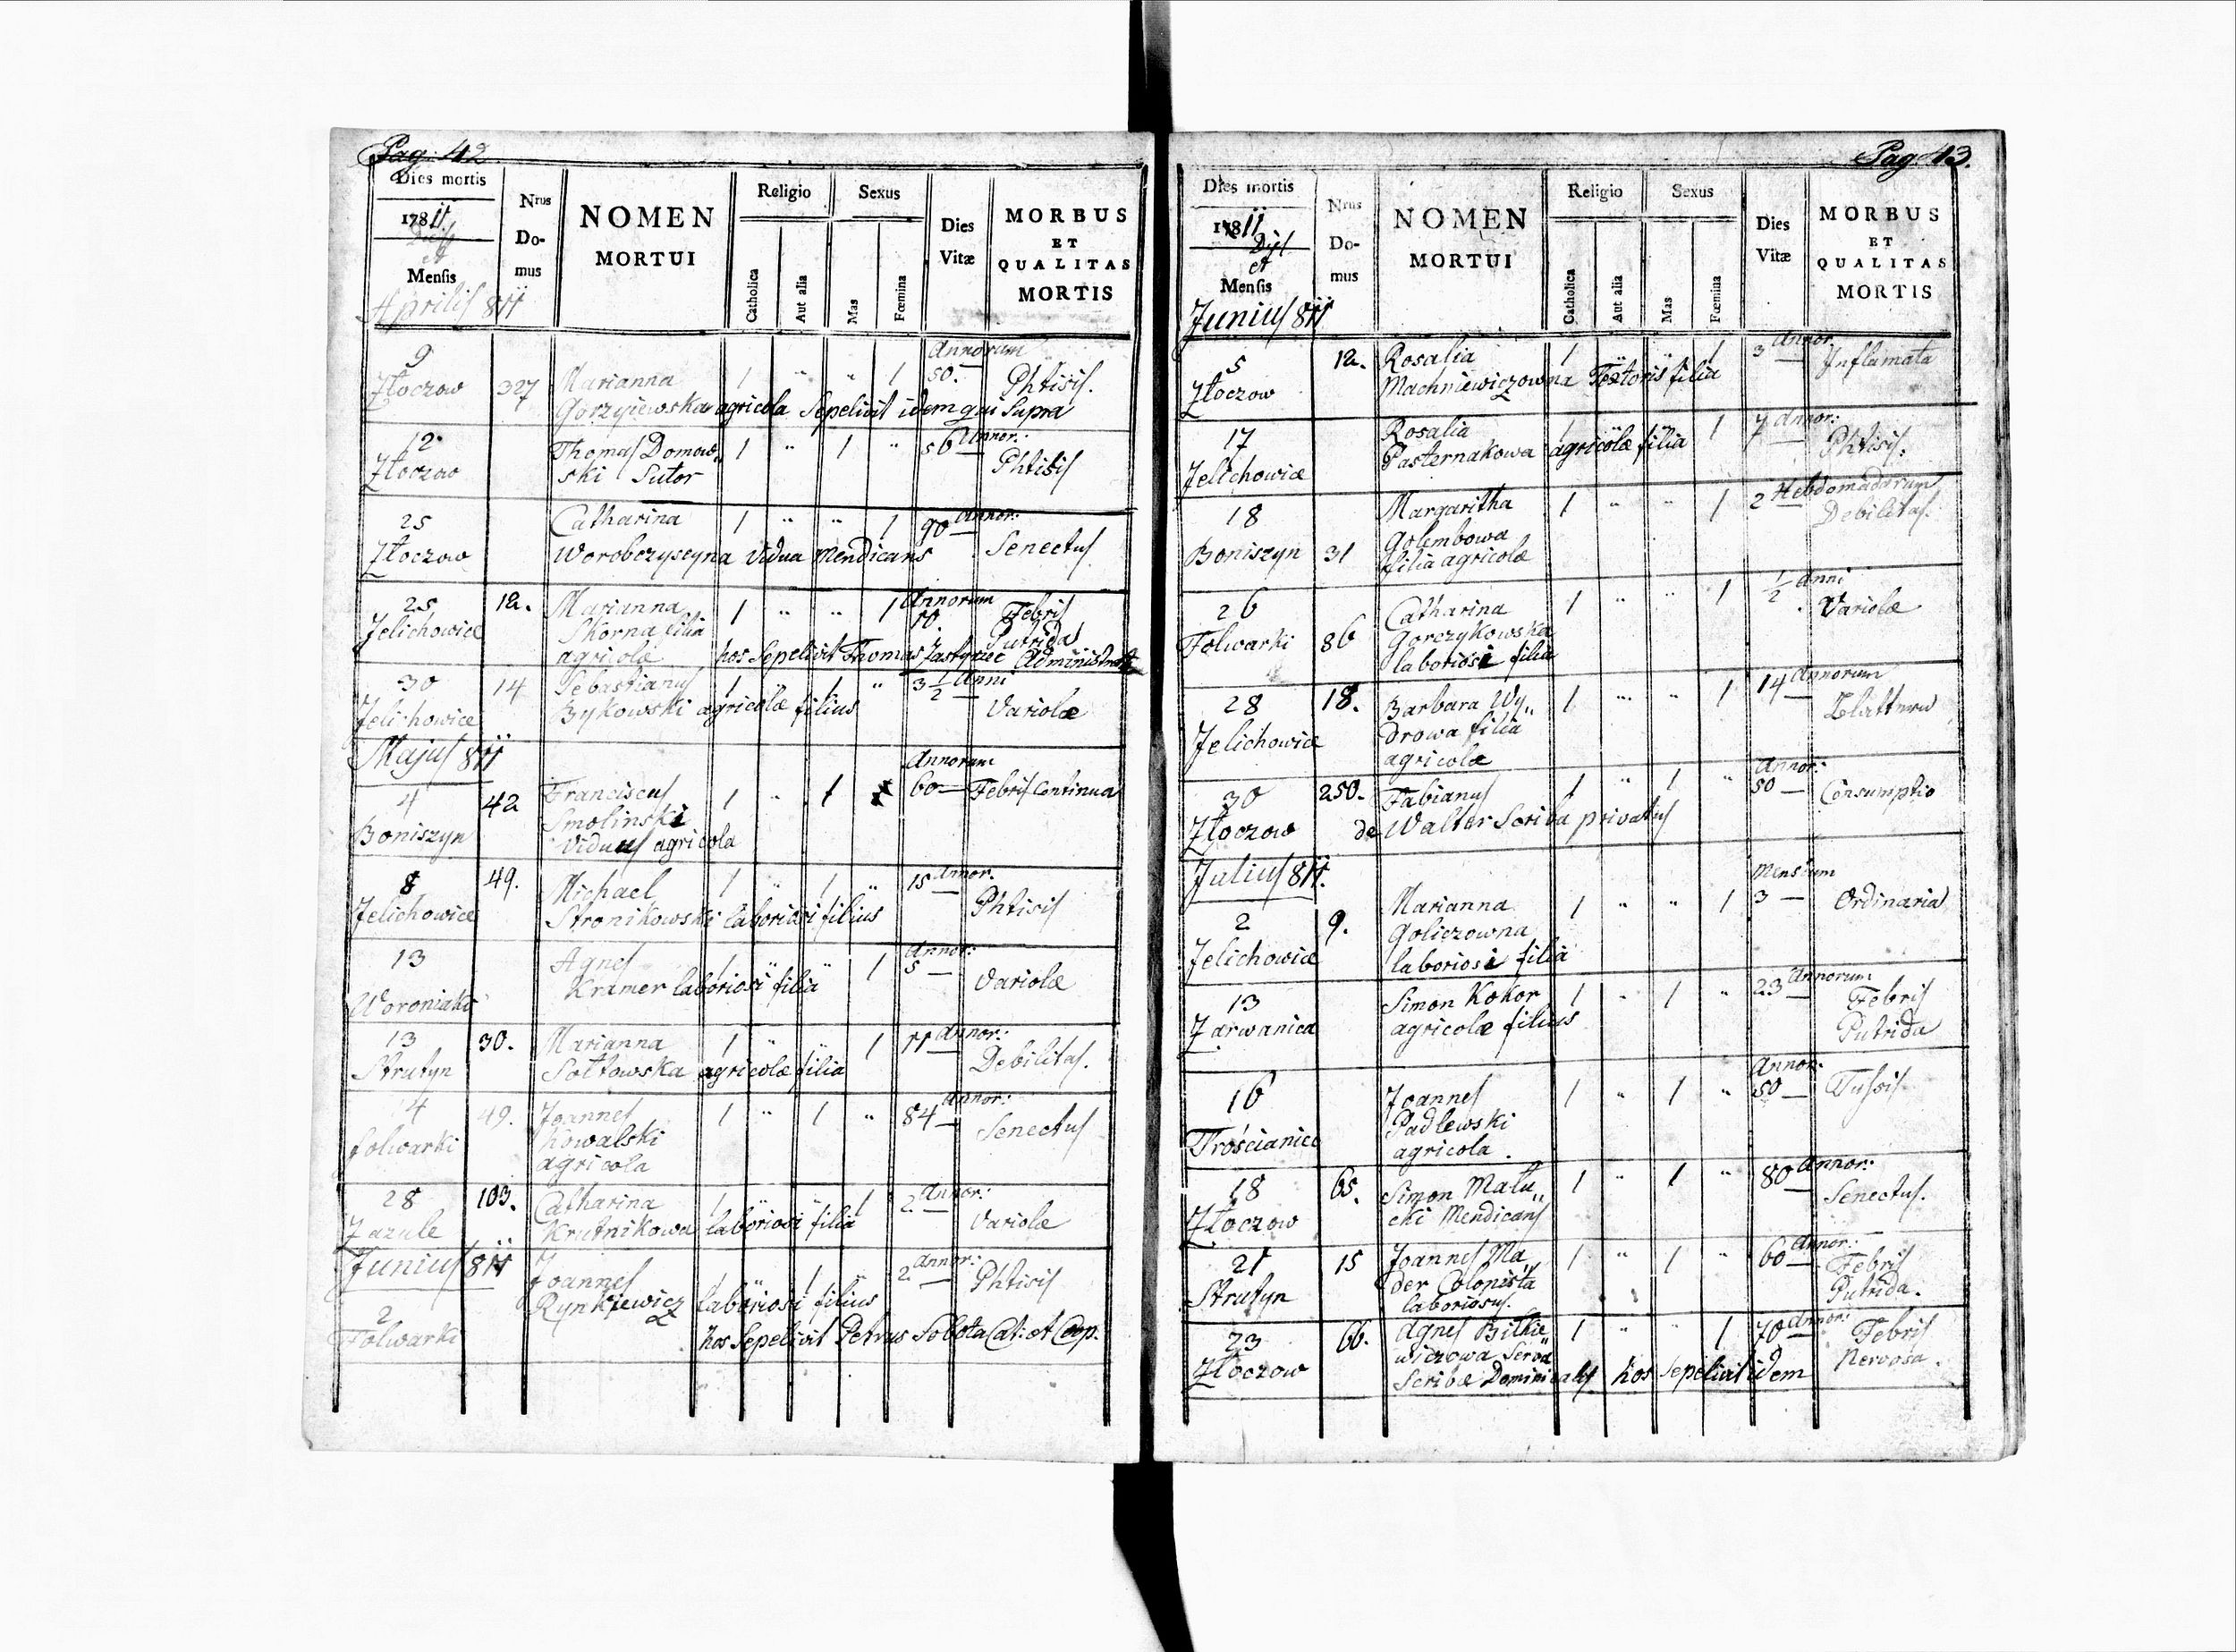 Pag: 42
Dies mortis
Nrus Domus
NOMEN MORTUI
Religio
Catholica
Aut alia
Sexus
Mas
Fœmina
Dies Vitæ
MORBUS ET QUALITAS MORTIS
1811
Mensis
Aprilis 811
9 Złoczow 327 Marianna 1 " " 1 Annorum 50. Phtisis.
agricola Sepelivit idem qui Supra
12 Złoczow Thomas Domow„ 1 " 1 " 56 Annor: Phtisis
ski Sutor
25 Złoczow Catharina 1 " " 1 90 Annor: Senectus
Worobczyscyna vidua Mendicans
25 Jelichowice 12. Marianna 1 " " 1 Annorum 10. Febris Putrida
Skorna filia
agricolæ hos Sepelivit Thomas Administrator
30 Jelichowice 14 Sebastianus 1 " 1 " 3 1/2 Anni Variolæ
Bykowski agricolæ filius
Majus 811
4 Boniszyn 42 Franciscus 1 " 1 Annorum 60 Febris Continua
Smolinski
Viduus agricola
8 Jelichowice 49. Michael 1 " 1 " 15 Annor. Phtisis
Stronikowski laboriosi filius
13 Woroniaki Agnes 1 " " 1 Annor: 5 Variolæ
Kramer laboriosi filia
13 Strutyn 30. Marianna 1 " " 1 11 Annor: Debilitas.
Sołtowska agricolæ filia
14 folwarki 49. Joannes 1 " 1 " 84 Annor: Senectus
Kowalski
agricola
28 Zazule 103. Catharina 1 " " 1 2 Annor: Variolæ
Krutnikowa laboriosi filia
Junius 811
2 Folwarki Joannes 1 " 1 " 2 Annor: Phtisis
Rynkiewicz laboriosi filius
hos Sepelivit Petrus Sobota Cat: et Coop.
Pag: 43.
Dies mortis
Nrus Domus
NOMEN MORTUI
Religio
Catholica
Aut alia
Sexus
Mas
Fœmina
Dies Vitæ
MORBUS ET QUALITAS MORTIS
1811
Dies
et
Mensis
Junius 811
5 Złoczow 12. Rosalia 1 " " 1 3 Annor. Inflamata
Machniewiczowna Textoris filia
17 Jelichowice Rosalia 1 " " 1 7 Annor: Phtisis.
Pasternakowa agricolæ filia
18 Boniszyn 31 Margaritha 1 " " 1 2 Hebdomadarum Debilitas.
Golembowa
filia agricolæ
26 Folwarki 86 Catharina 1 " " 1 1/2 Anni Variolæ
Gorczykowska
laboriosi filia
28 Jelichowice 18. Barbara Wy„ 1 " " 1 14 Annorum Blattern
drowa filia
agricolæ
30 Złoczow 250. Fabianus 1 " 1 " Annor: 50 Consumptio
de Walter Scriba privatus
Julius 811.
2 Jelichowice 9. Marianna 1 " " 1 Mensium 3 Ordinaria
Goliczowna
laboriosi filia
13 Zarwanica Simon Kokor 1 " 1 " 23 Annorum Febris Putrida
agricolæ filius
16 Trościaniec Joannes 1 " 1 " Annor: 50 Tussis
Padlewski
agricola.
18 Złoczow 65. Simon Malu„ 1 " 1 " 80 Annor: Senectus.
cki Mendicans
21 Strutyn 15 Joannes Ma„ 1 " 1 " 60 Annor: Febris Putrida.
der Colonista
laboriosus.
23 Złoczow 66. Agnes Bilkie„ 1 " " 1 70 Annor: Febris Nervosa.
wiczowa Serva
Scribæ Dominicalis hos sepelivit idem